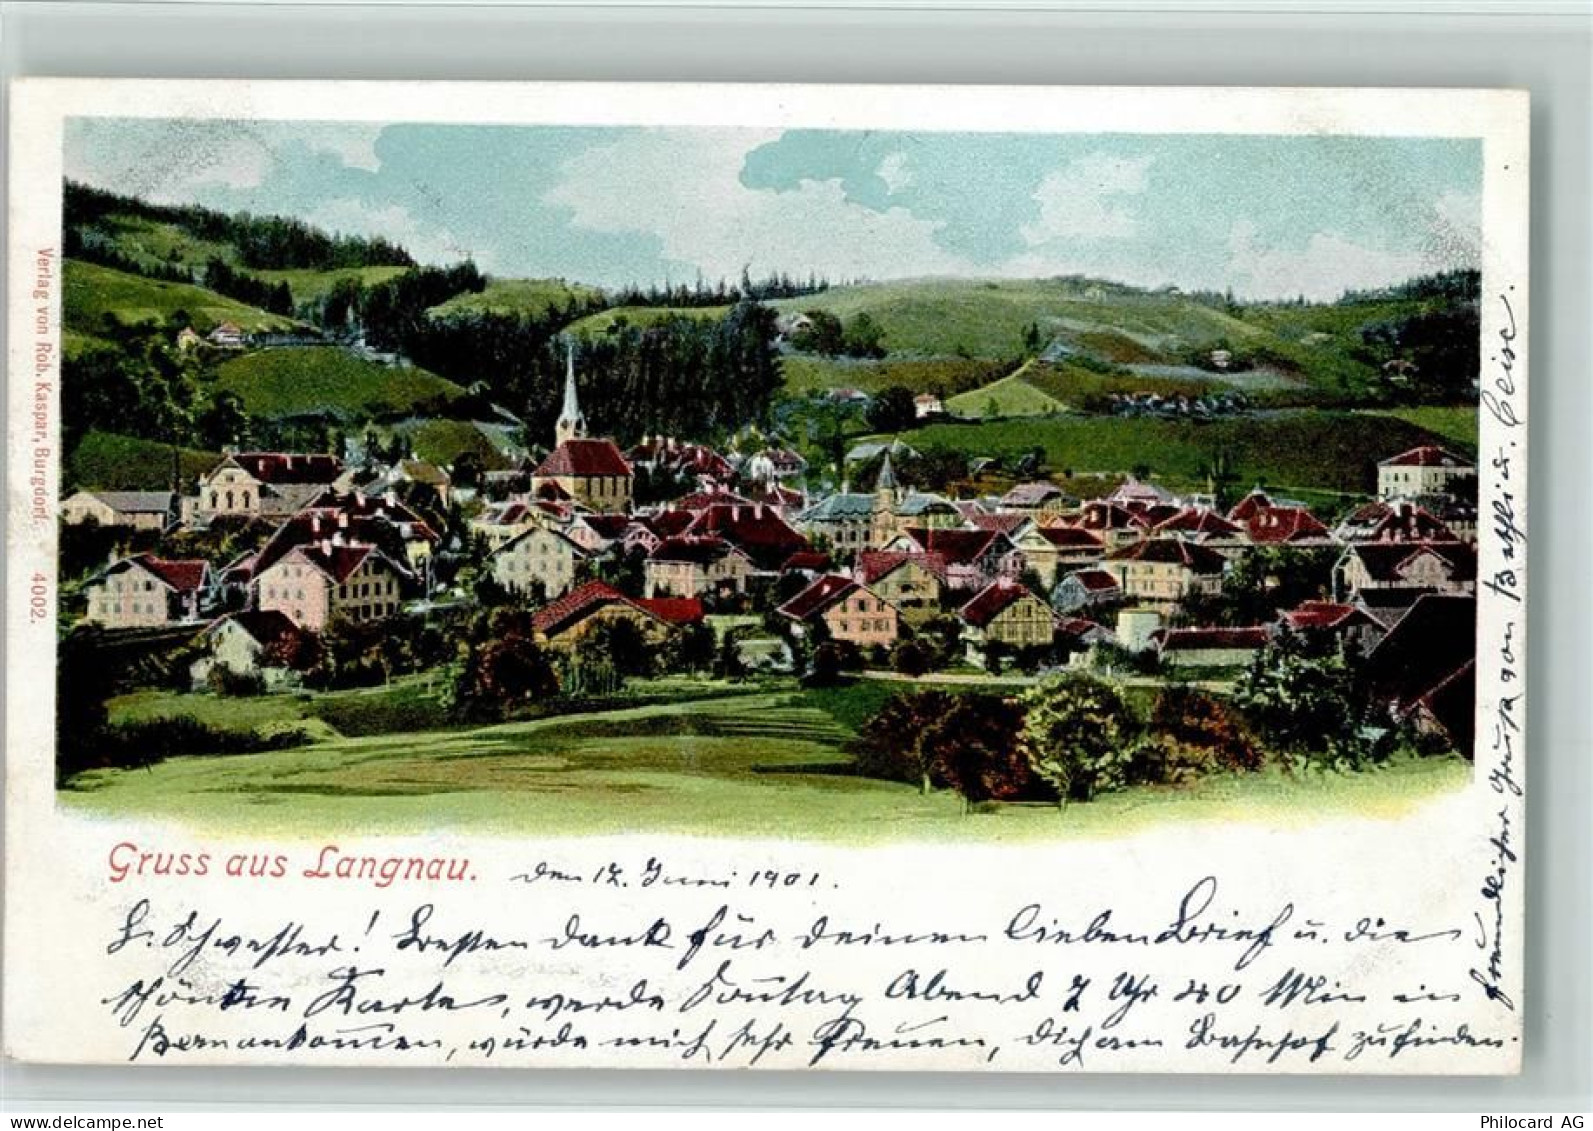 Verlag von Rob. Kaspar, Burgdorf. 4002.
Gruss aus Langnau. den 12. Juni 1901.
L. Schwester! Besten Dank für deinen lieben Brief u. die
schönen Karten, werde Sonntag Abend 7 Uhr 40 Min in
Bern ankommen, würde mich sehr freuen, dich am Bahnhof zu finden.
freundlicher Gruss von
delcampe.net
Philocard AG